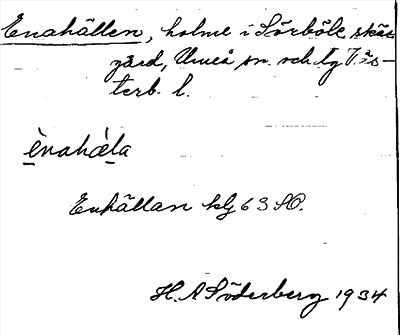 Enahällen, holme i Sörböle skär
gård, Umeå sn. och lg Väs-
terb. l.
ènahàla
Enhällan klg 63 SO.
H. A Söderberg 1934